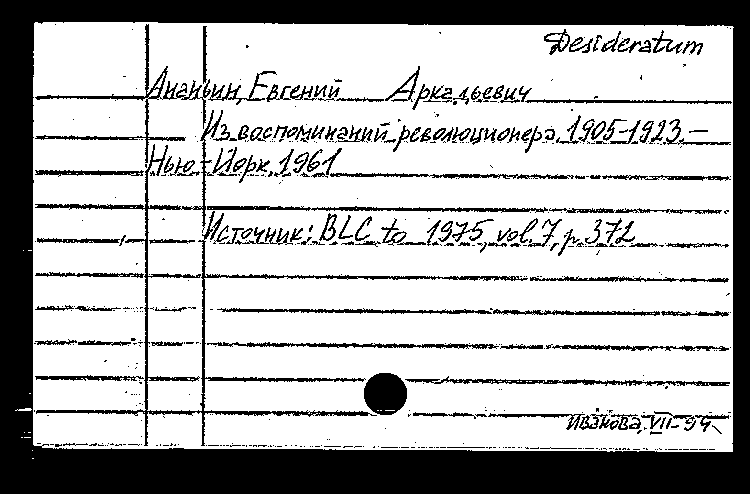 Desideratum
Ананьин, Евгений Аркадьевич
Из воспоминаний революционера. 1905-1923. —
Нью-Йорк, 1961
Источник: BLC to 1975, vol. 7, p. 372
Иванова, VII-94